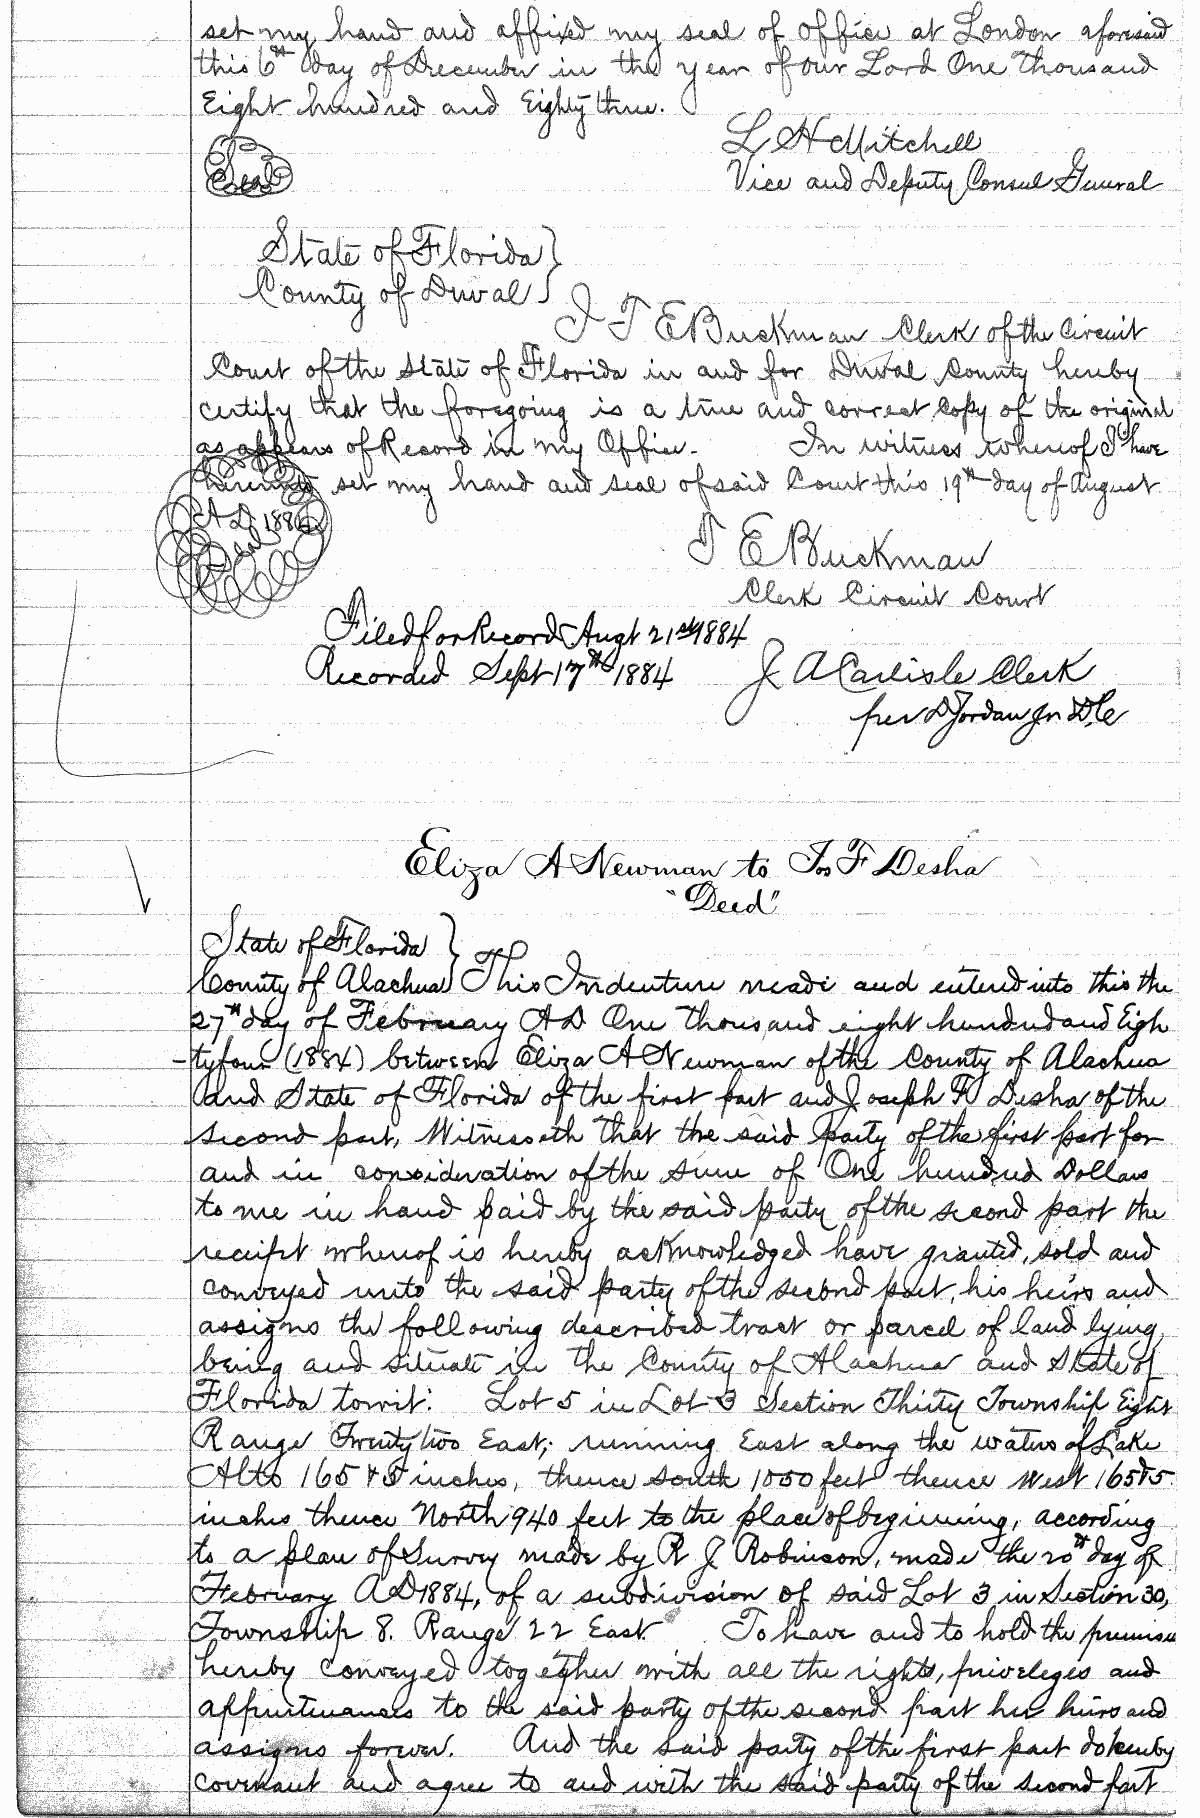 set my hand and affixed my seal of office at London aforesaid
this 6th day of December in the year of our Lord One Thousand
Eight hundred and Eighty three.
L H Mitchell
Seal
Vice and Deputy Consul General
State of Florida }
County of Duval }
I T E Buckman Clerk of the Circuit
Court of the State of Florida in and for Duval County hereby
certify that the foregoing is a true and correct copy of the original
as appears of Record in my Office. In witness whereof I have
hereunto set my hand and seal of said Court this 19th day of August
A D 1884
Seal
T E Buckman
Clerk Circuit Court
Filed for Record Augt 21st 1884
Recorded Sept 17th 1884
J A Carlisle Clerk
per D Jordan Jn D.C
Eliza A Newman to Jos F Desha
"Deed"
State of Florida }
County of Alachua } This Indenture made and entered into this the
27th day of February A D One thousand eight hundred and Eigh
-tyfour (1884) between Eliza A Newman of the County of Alachua
and State of Florida of the first part and Joseph F Desha of the
second part, Witnesseth that the said party of the first part for
and in consideration of the sum of One hundred Dollars
to me in hand paid by the said party of the second part the
receipt whereof is hereby acknowledged have granted, sold and
conveyed unto the said party of the second part, his heirs and
assigns the following described tract or parcel of land lying,
being and situate in the County of Alachua and State of
Florida towit: Lot 5 in Lot 3 Section Thirty Township Eight
Range Twenty two East; running East along the waters of Lake
Alto 165 & 5 inches, thence south 1050 feet thence west 165 & 5
inches thence North 940 feet to the place of beginning, according
to a plan of Survey made by R J Robinson, made the 20th day of
February A D 1884, of a subdivision of said Lot 3 in Section 30,
Township 8. Range 22 East. To have and to hold the premises
hereby conveyed together with all the rights, priveleges and
appurtenances to the said party of the second part her heirs and
assigns forever. And the said party of the first part do hereby
covenant and agree to and with the said party of the second part